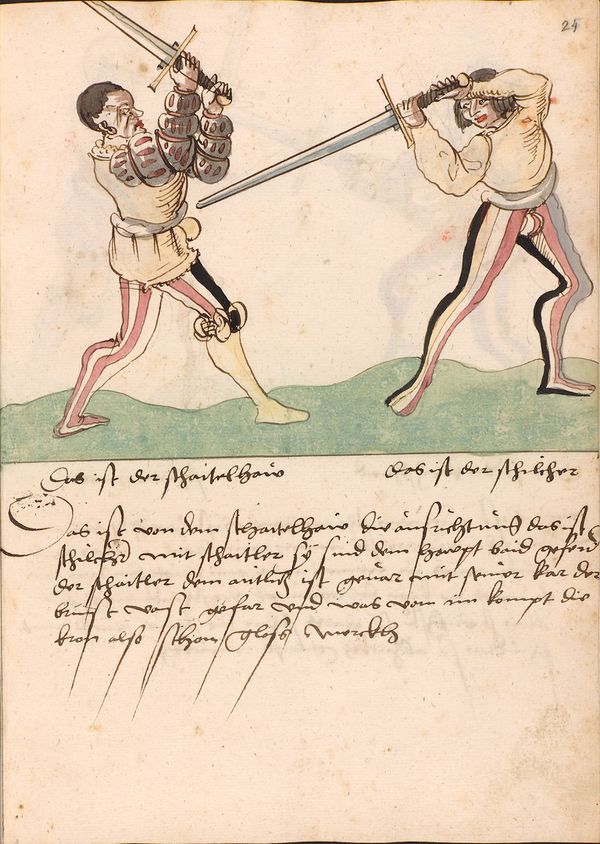 24
Das ist der schaitelhaw
das ist der schilcher
Das ist von dem schaitelhaw die ausrichtung das ist
schilcher mit schaitler sy sind dem hawpt baid geferd
der schaitler dem antlitz ist gevar mit seiner kar der
brust vast gefar und was vom im kompt die
kron also schon gloss merckh